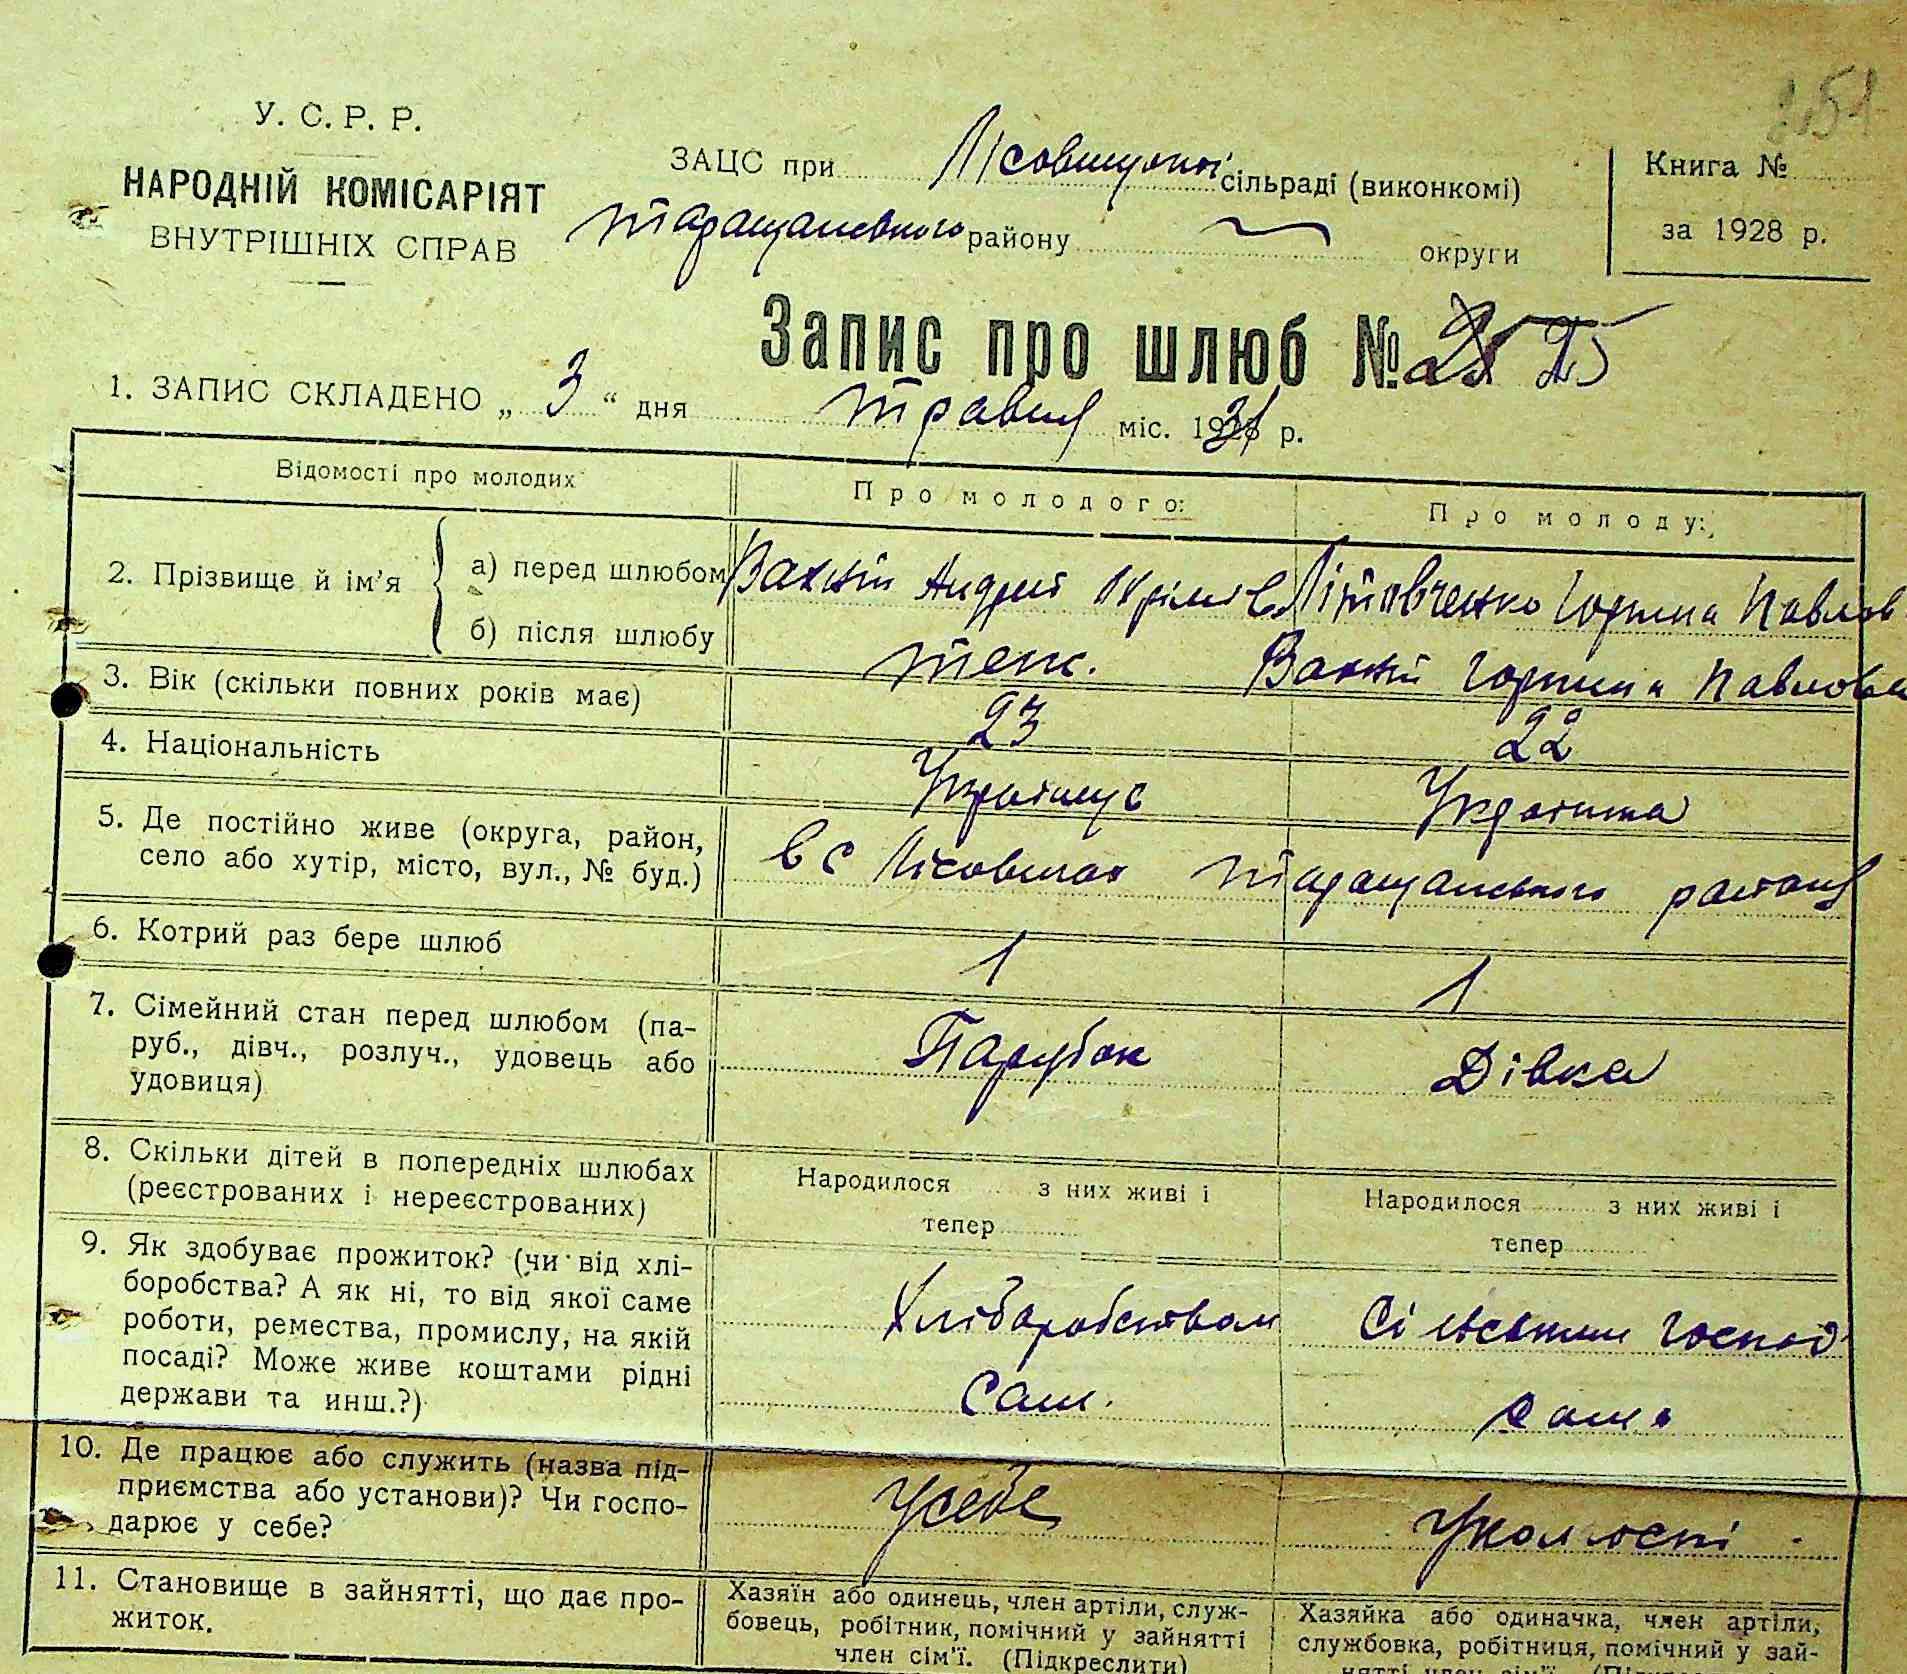 251
У. С. Р. Р.
НАРОДНІЙ КОМІСАРІЯТ
ВНУТРІШНІХ СПРАВ
ЗАЦС при сільраді (виконкомі)
Таращанського району округи
Книга №
за 1928 р.
Запис про шлюб № 25
1. ЗАПИС СКЛАДЕНО „ 3 “ дня Травня міс. 1931 р.
Відомості про молодих
Про молодого:
Про молоду:
2. Прізвище й ім'я
а) перед шлюбом
Андрій
Літовченко Горпина Павлов
б) після шлюбу
теж.
Горпина Павловна
3. Вік (скільки повних років має)
23
22
4. Національність
Українец
Українка
5. Де постійно живе (округа, район,
село або хутір, місто, вул., № буд.)
в с Лісовичах Таращанського району
6. Котрий раз бере шлюб
1
1
7. Сімейний стан перед шлюбом (па-
руб., дівч., розлуч., удовець або
удовиця)
Парубок
Дівка
8. Скільки дітей в попередніх шлюбах
(реєстрованих і нереєстрованих)
Народилося з них живі і
тепер
Народилося з них живі і
тепер
9. Як здобуває прожиток? (чи від хлі-
боробства? А як ні, то від якої саме
роботи, ремества, промислу, на якій
посаді? Може живе коштами рідні
держави та инш.?)
Хліборобством
Сам.
Сільським господ
сама
10. Де працює або служить (назва під-
приємства або установи)? Чи госпо-
дарює у себе?
Усебе
Уколгоспі
11. Становище в зайнятті, що дає про-
житок.
Хазяїн або одинець, член артіли, служ-
бовець, робітник, помічний у зайнятті
член сім'ї. (Підкреслити)
Хазяйка або одиначка, член артіли,
службовка, робітниця, помічний у зай-
нятті член сім'ї.